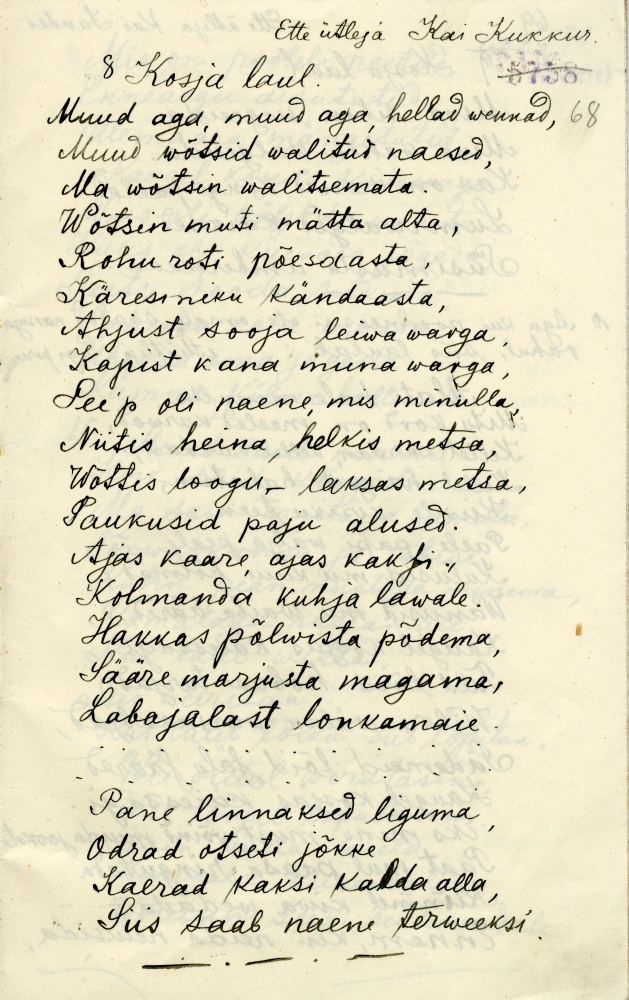 Ette ütleja Kai Kukkur.
5758
8 Kosja laul.
Muud aga, muud aga, hellad wennad, 68
Muud wõtsid walitud naesed,
Ma wõtsin walitsemata.
Wõtsin muti mätta alta,
Rohu roti põesaasta,
Käresiniku kändaasta,
Ahjust sooja leiwa warga,
Kapist kana muna warga,
See'p oli naene, mis minulla,
Niitis heina, helkis metsa,
Wõttis loogu, – laksas metsa,
Paukusid paju alused.
Ajas kaare, ajas kaksi,
Kolmanda kuhja lawale.
Hakkas põlwista põdema,
Sääre marjusta magama,
Labajalast lonkamaie.
. . . . . . . . . .
Pane linnaksed liguma,
Odrad otseti jõkke
Kaerad kaksi kalda alla,
Siis saab naene terweeksi.